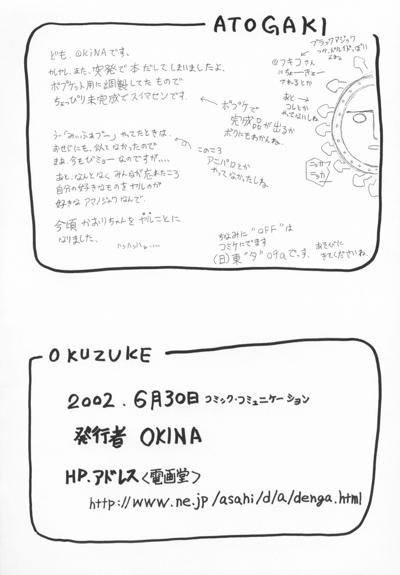 ATOGAKI
ども、OKiNAです。
また、突発で本だしてしまいましたよ。
ボブケット用に調製してたもので
ちょっぴり未完成でスイマセンです。
やってたときは、
おせじにも、似てなかったので
まぁ、今もびみょーなのですが、、、
あと、なんとなくみんなが忘れたころ
自分の好きなものをヤルのが
好きなアマノジャクなんで、
今頃かおりちゃんをヤルことに
なりました、
ボブケで
完成品が出るか
ボクにもわかんね。
このころ
アニパロとか
やってなかったしね。
ブラックマジック
@フキコさん
されるとか
あと
コレとか
やってないしね
ニッカ
ニッカ
ちなみに"OFF"は
コミケにでます
(日)東"ダ"09aです。
あそびに
きてくださいね。
OKUZUKE
2002.6月30日 コミック・コミュニケーション
発行者 OKINA
HP.アドレス<電画堂>
http://www.ne.jp/asahi/d/a/denga.html